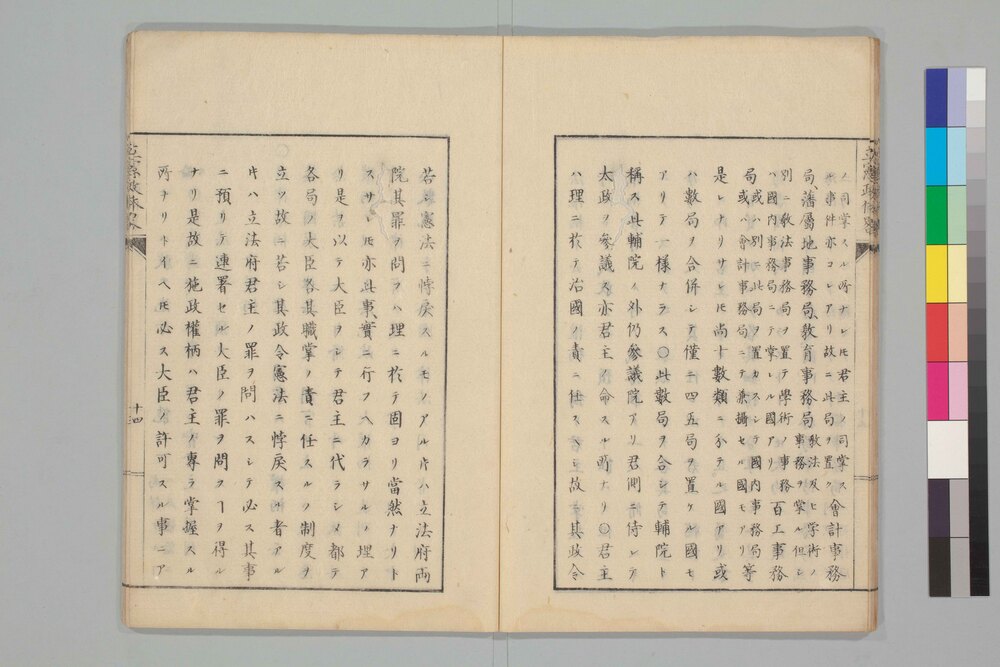 ノ司掌スル所ナレ𪜈君主ノ司掌ス會計事務
此事件亦コレアリ故ニ此局ヲ置ク
局、藩屬地事務局、敎育事務局、敎法及ヒ學術ノ事務ヲ掌ル但シ
別ニ敎法事務局ヲ置テ學術ノ事務百工事務
ハ國内事務局ニテ掌レル國アリ
局或ハ別ニ此局ヲ置カスシテ國内事務局等
或ハ會計事務局ニテ兼攝セル國モアリ
是レナリサレ𪜈尚十數類ニ分テル國アリ或
ハ數局ヲ合併シテ僅ニ四五局ヲ置ケル國モ
アリテ一様ナラス〇此數局ヲ合シテ輔院ト
稱ス此輔院ノ外仍參議院アリ君側ニ侍シテ
太政ヲ參議ス亦君主ノ命スル所ナリ〇君主
ハ理ニ於テ治國ノ責ニ任スヘシ故ニ其政令
若シ憲法ニ悖戾スルモノアル片ハ立法府両
院其罪ヲ問フハ理ニ於テ固ヨリ當然ナリト
スサレ𪜈亦此事、實ニ行フヘカラサルノ理ア
リ是ヲ以テ大臣ヲシテ君主ニ代ラシメ都テ
各局ノ大臣各其職掌ノ責ニ任スルノ制度ヲ
立ツ故ニ若シ其政令憲法ニ悖戾スル者アル
片ハ立法府君主ノ罪ヲ問ハスシテ必ス其事
ニ預リテ連署セル大臣ノ罪ヲ問フヿヲ得ル
ナリ是故ニ施政權柄ハ君主ノ專ラ掌握スル
所ナリトイヘ𪜈必ス大臣ノ許可スル事ニア
十四